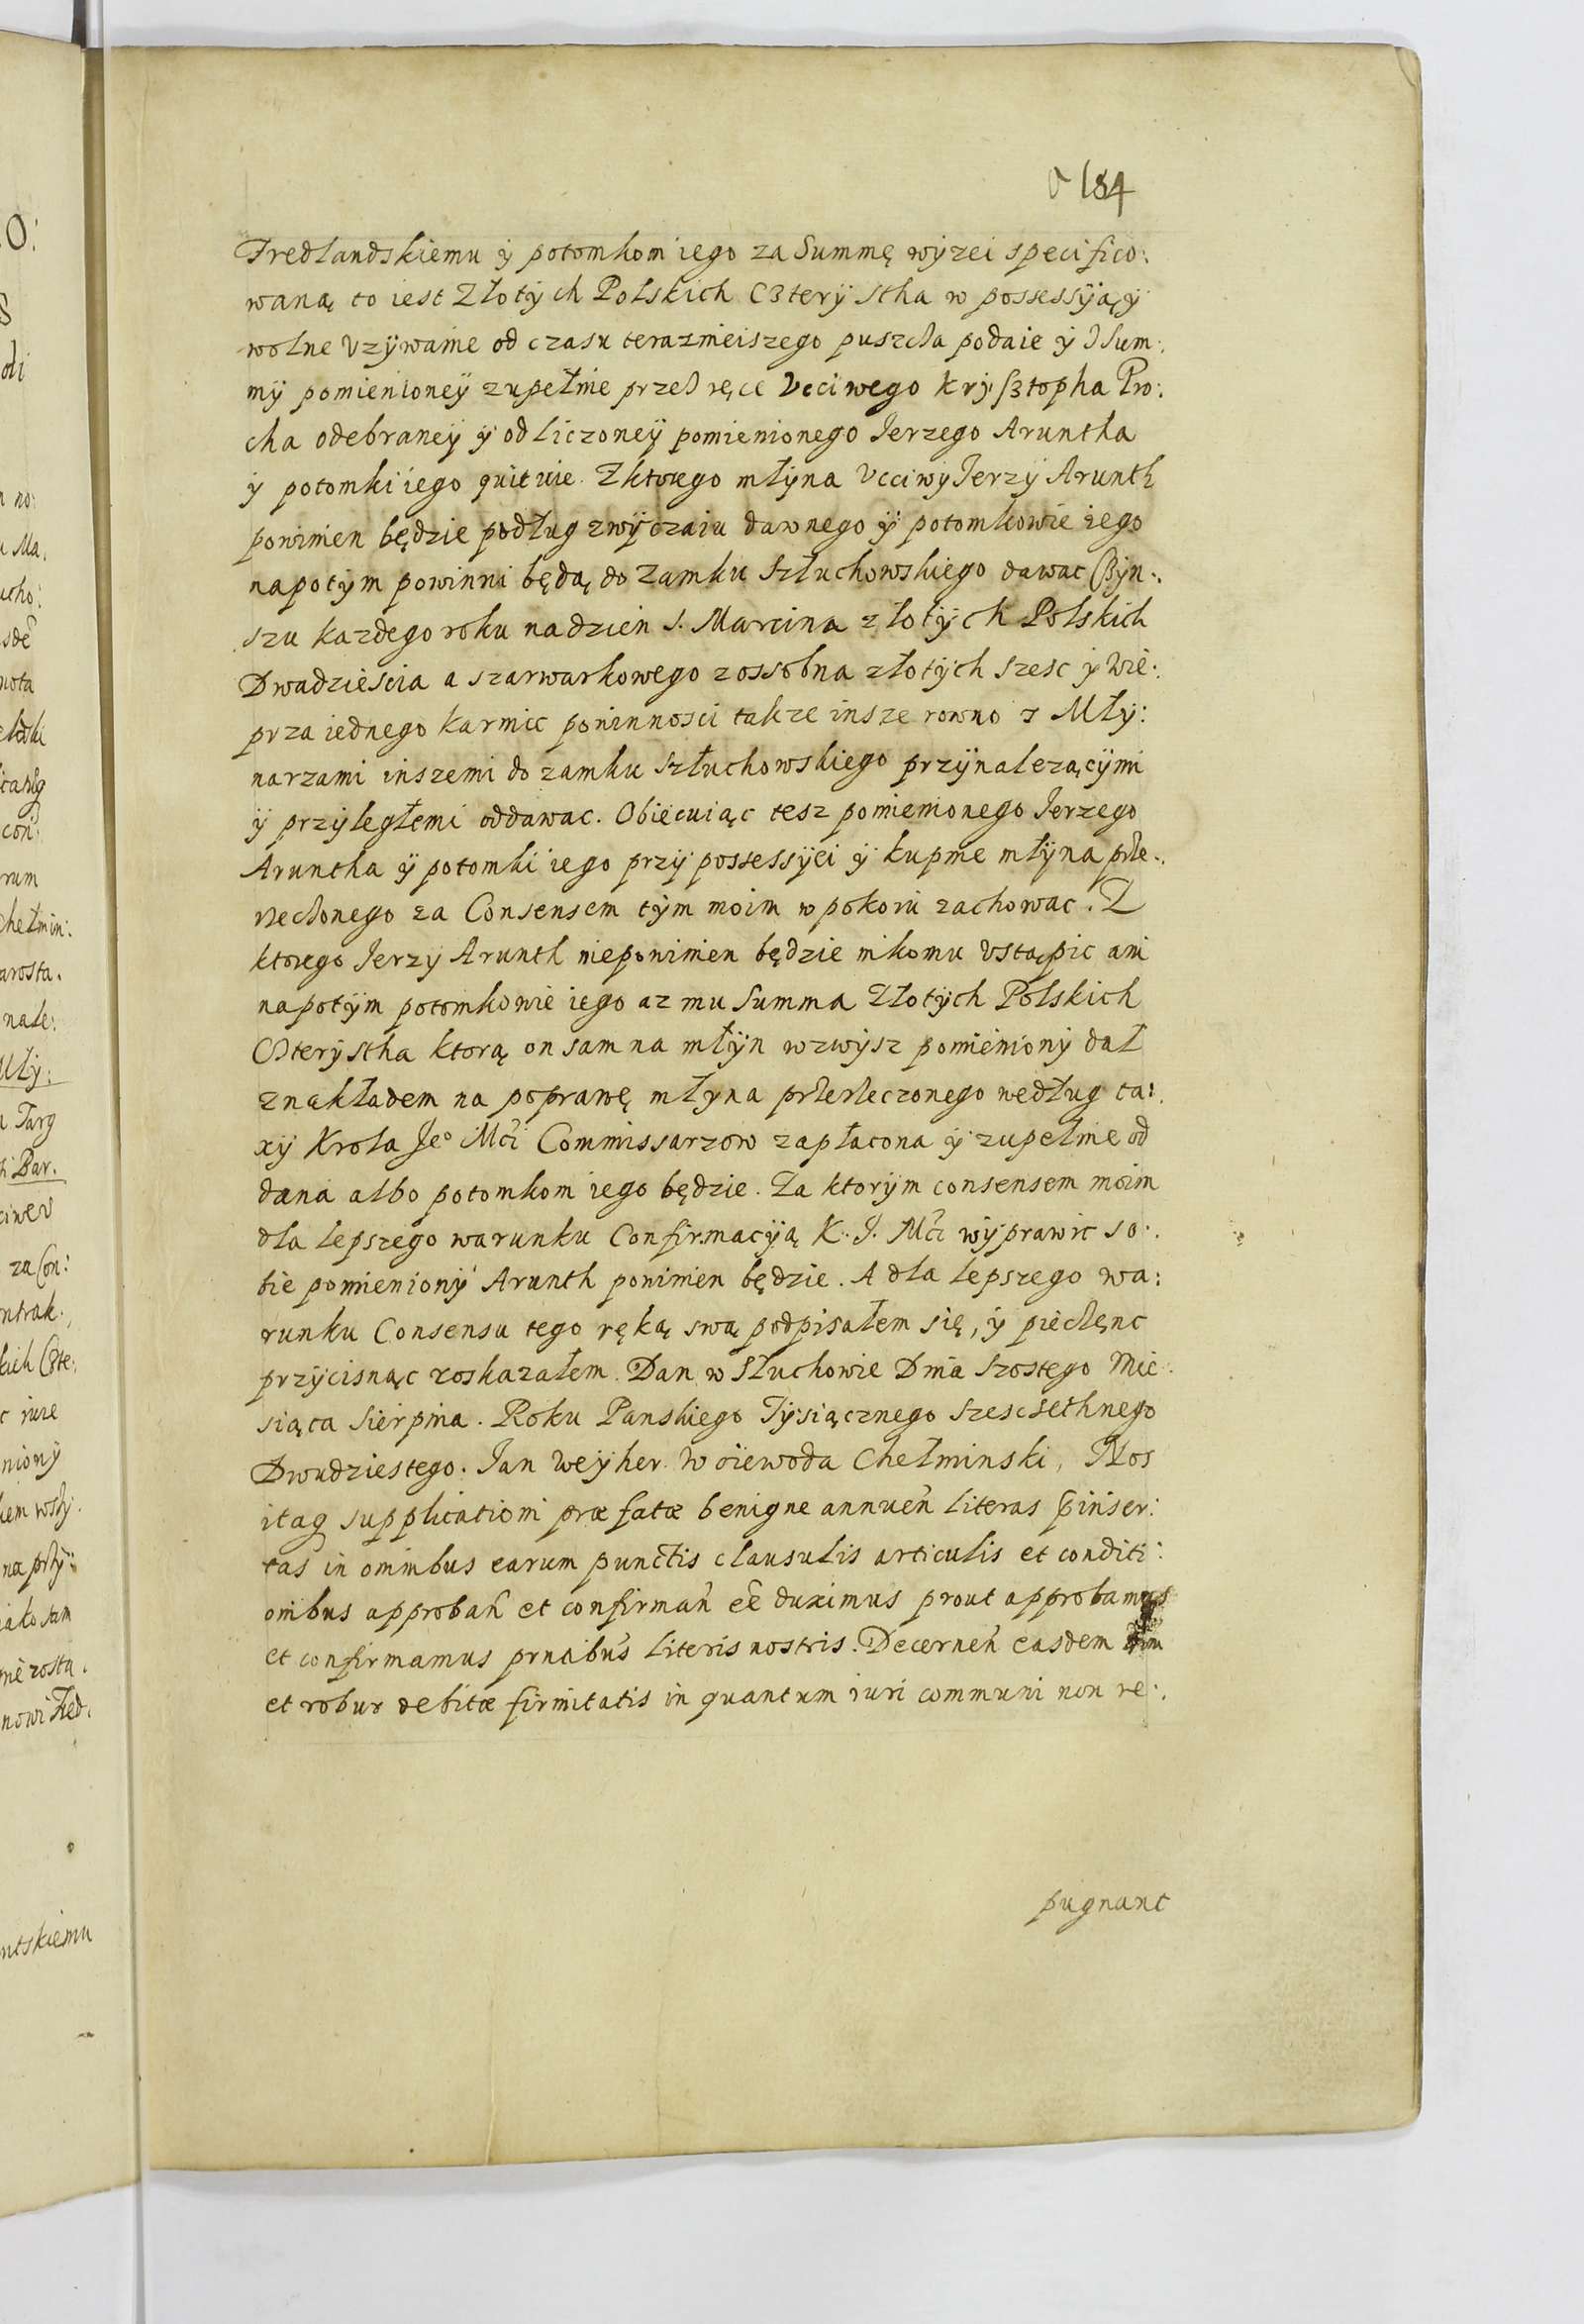 184
Fredlandskiemu ÿ potomkom iego za Summę wÿzei specifico:
waną to iest Złotÿch Polskich Czterÿ stha w possessÿą ÿ
wolne Vzÿwanie od czasu teraznieiszego puszcza podaie ÿ z sum:
mÿ pomienioneÿ zupełnie przez ręce Vcciwego Krÿsztopha Pro:
cha odebraneÿ ÿ odliczoneÿ pomienionego Jerzego Aruntha
ÿ potomki iego quituie. Z ktorego młÿna Vcciwÿ Jerzÿ Arunth
powinien będzie podług zwÿczaiu dawnego ÿ potomkowie iego
napotÿm powinni będą do Zamku Szłuchowskiego dawac Czÿn:
szu kazdego roku na dzien S. Marcina złotÿch Polskich
Dwadziescia a szarwarkowego zossobna złotÿch szesc ÿ wie:
prza iednego karmic powinnosci takze insze rowno z Młÿ:
narzami inszemi do zamku Szłuchowskiego przÿnalezącÿmi
ÿ przÿległemi oddawac. Obiecuiąc tesz pomienionego Jerzego
Aruntha ÿ potomki iego przÿ possessÿei ÿ kupnie młÿna prze:
rzeczonego za Consensem tÿm moim w pokoiu zachowac. Z
ktorego Jerzÿ Arunth niepowinien będzie nikomu Vstąpic ani
napotÿm potomkowie iego az mu Summa Złotÿch Polskich
Czterÿstha ktorą on sam na młÿn wzwÿsz pomienionÿ dał
z nakładem na poprawę młÿna przerzeczonego według ta:
xÿ Krola Jeº Mći Commissarzow zapłacona ÿ zupełnie od
dana albo potomkom iego będzie. Za ktorÿm consensem moim
dla lepszego warunku Confirmacÿą K. J. Mći wÿprawic so:
bie pomienionÿ Arunth powinien będzie. A dla lepszego wa:
runku Consensu tego ręką swą podpisałem się, ÿ pieczęnc
przÿcisnąc roskazałem. Dan w Słuchowie Dnia Szostego Mie:
siąca Sierpnia. Roku Panskiego Tÿsiącznego szescsethnego
Dwudziestego. Jan Weÿher Woiewoda Chełminski, Nos
itaq supplicationi præfatæ benigne annueñ literas p̃inser:
tas in omnibus earum punctis clausulis articulis et conditi:
onibus approbañ et confirmañ eẽ duximus prout approbamus
et confirmamus prñtibus literis nostris. Decerneñ easdem vim
et robur debitæ firmitatis in quantum iuri communi non re:
pugnant